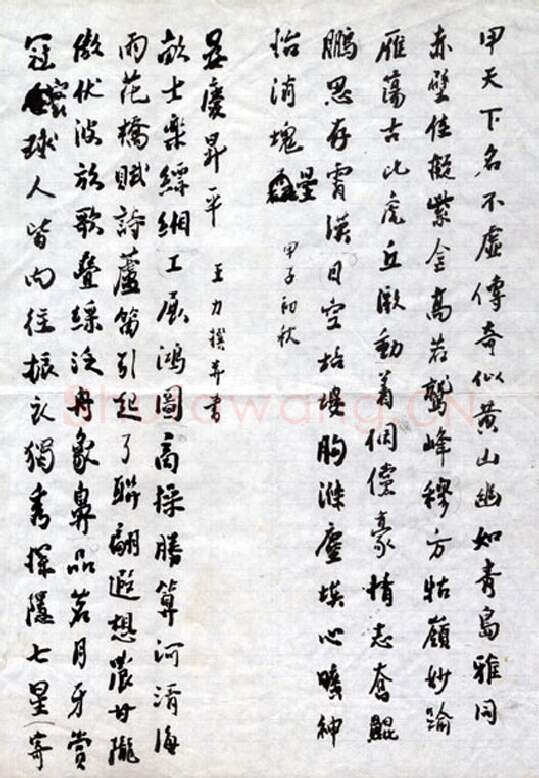 甲天下名不虛傳奇似黄山幽如青島雅同
赤壁佳擬紫金高若鷲峰穆方牯嶺妙踰
雁蕩古比虎丘激動着倜儻豪情志奮鯤
鵬思存霄漢目空培塿胸滌塵埃心曠神
怡消塊壘 甲子初秋
冠寰球人皆向往振衣獨秀探隱七星寄
傲伏波放歌疊綵泛舟象鼻品茗月牙賞
雨花橋賦詩蘆笛引起了聯翩遐想農甘隴
畝士樂縹緗工展鴻圖商操勝算河清海
晏慶昇平 王力撰并書
Shufawang.CN